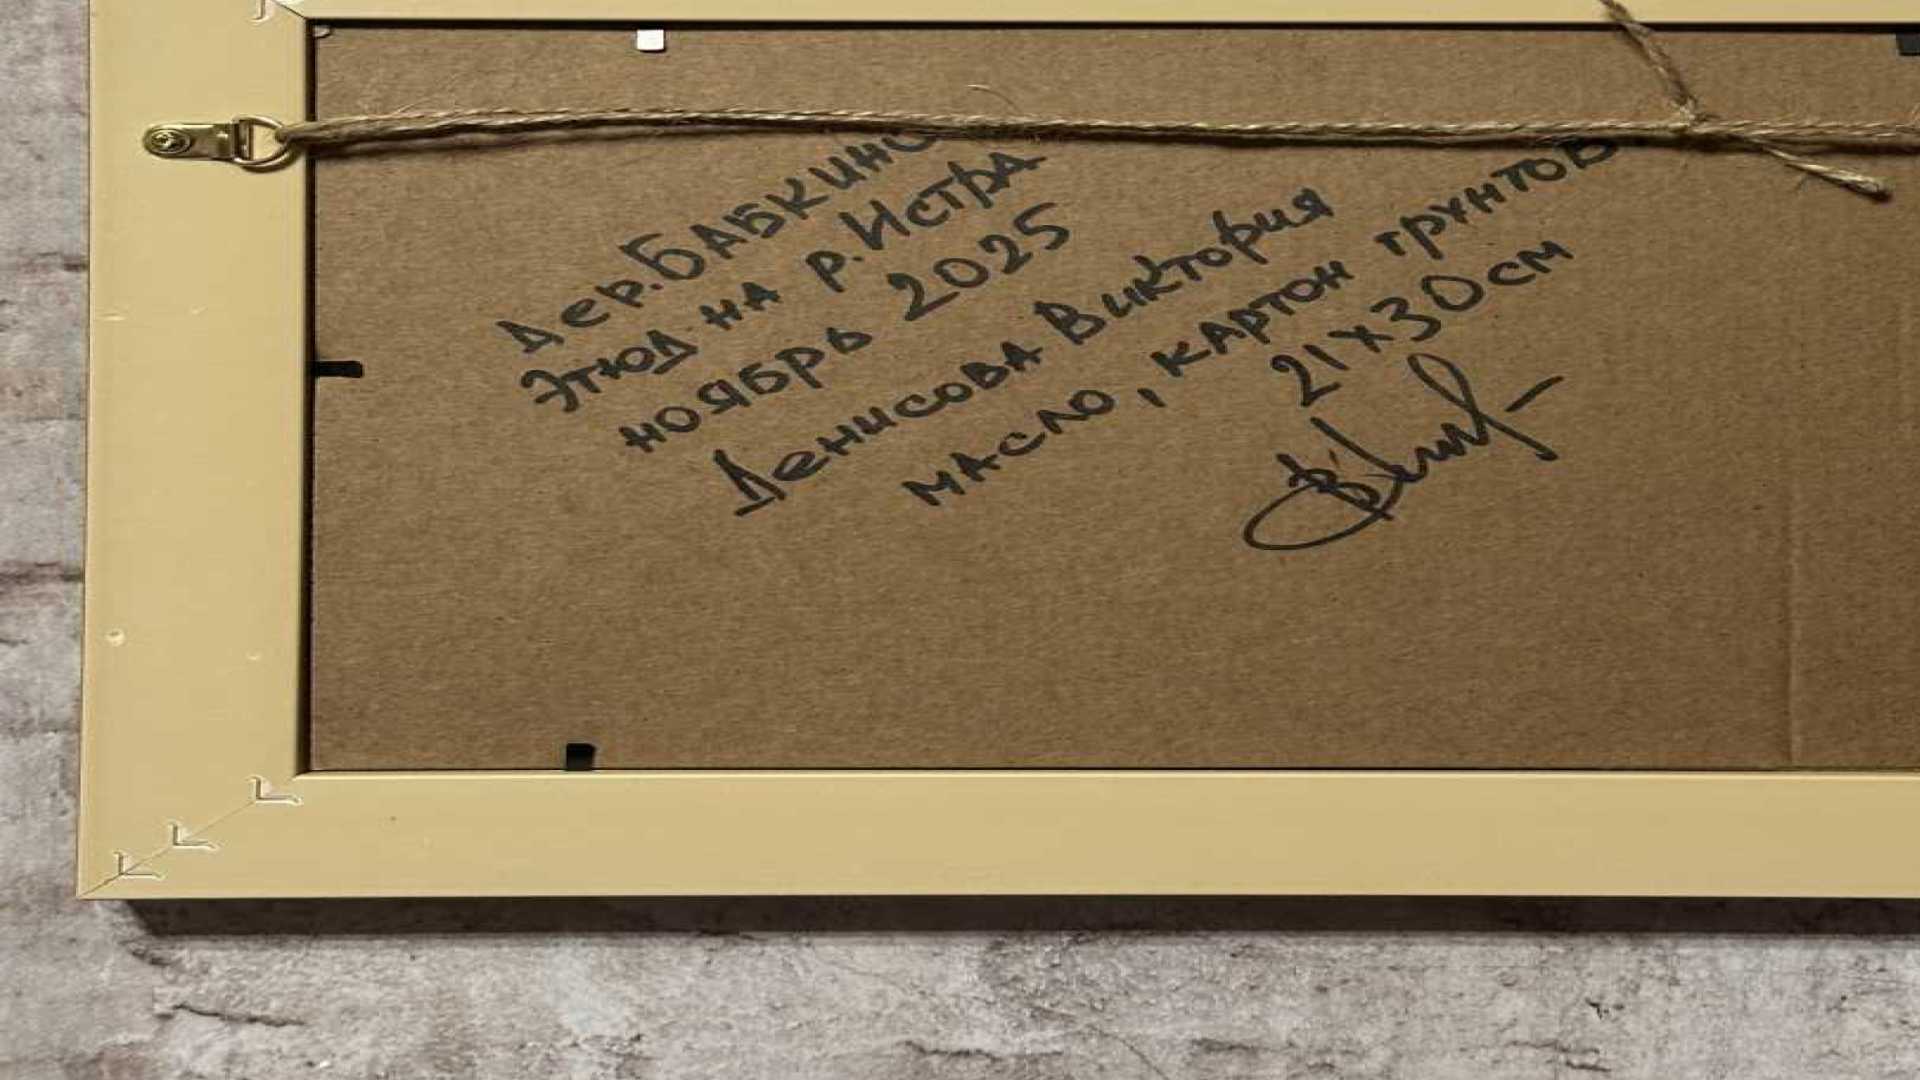 дер. Бабкино
этюд на р. Истра
ноябрь 2025
Денисова Виктория
масло, картон грунтов
21х30 см